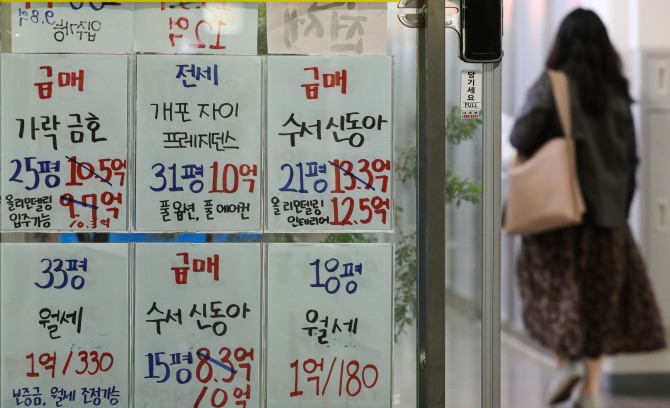 9.8억
입주가능
12억
전세
급매
가락 금호
25평 10.5억
올리모델링 9.7억
입주가능
전세
개포 자이
프레지던스
31평 10억
풀옵션, 풀에어컨
급매
수서 신동아
21평 13.3억
올리모델링 12.5억
인테리어
당기세요
PULL
33평
월세
1억/330
보증금, 월세 조정가능
급매
수서 신동아
15평 8.3억
18평
월세
1억/180